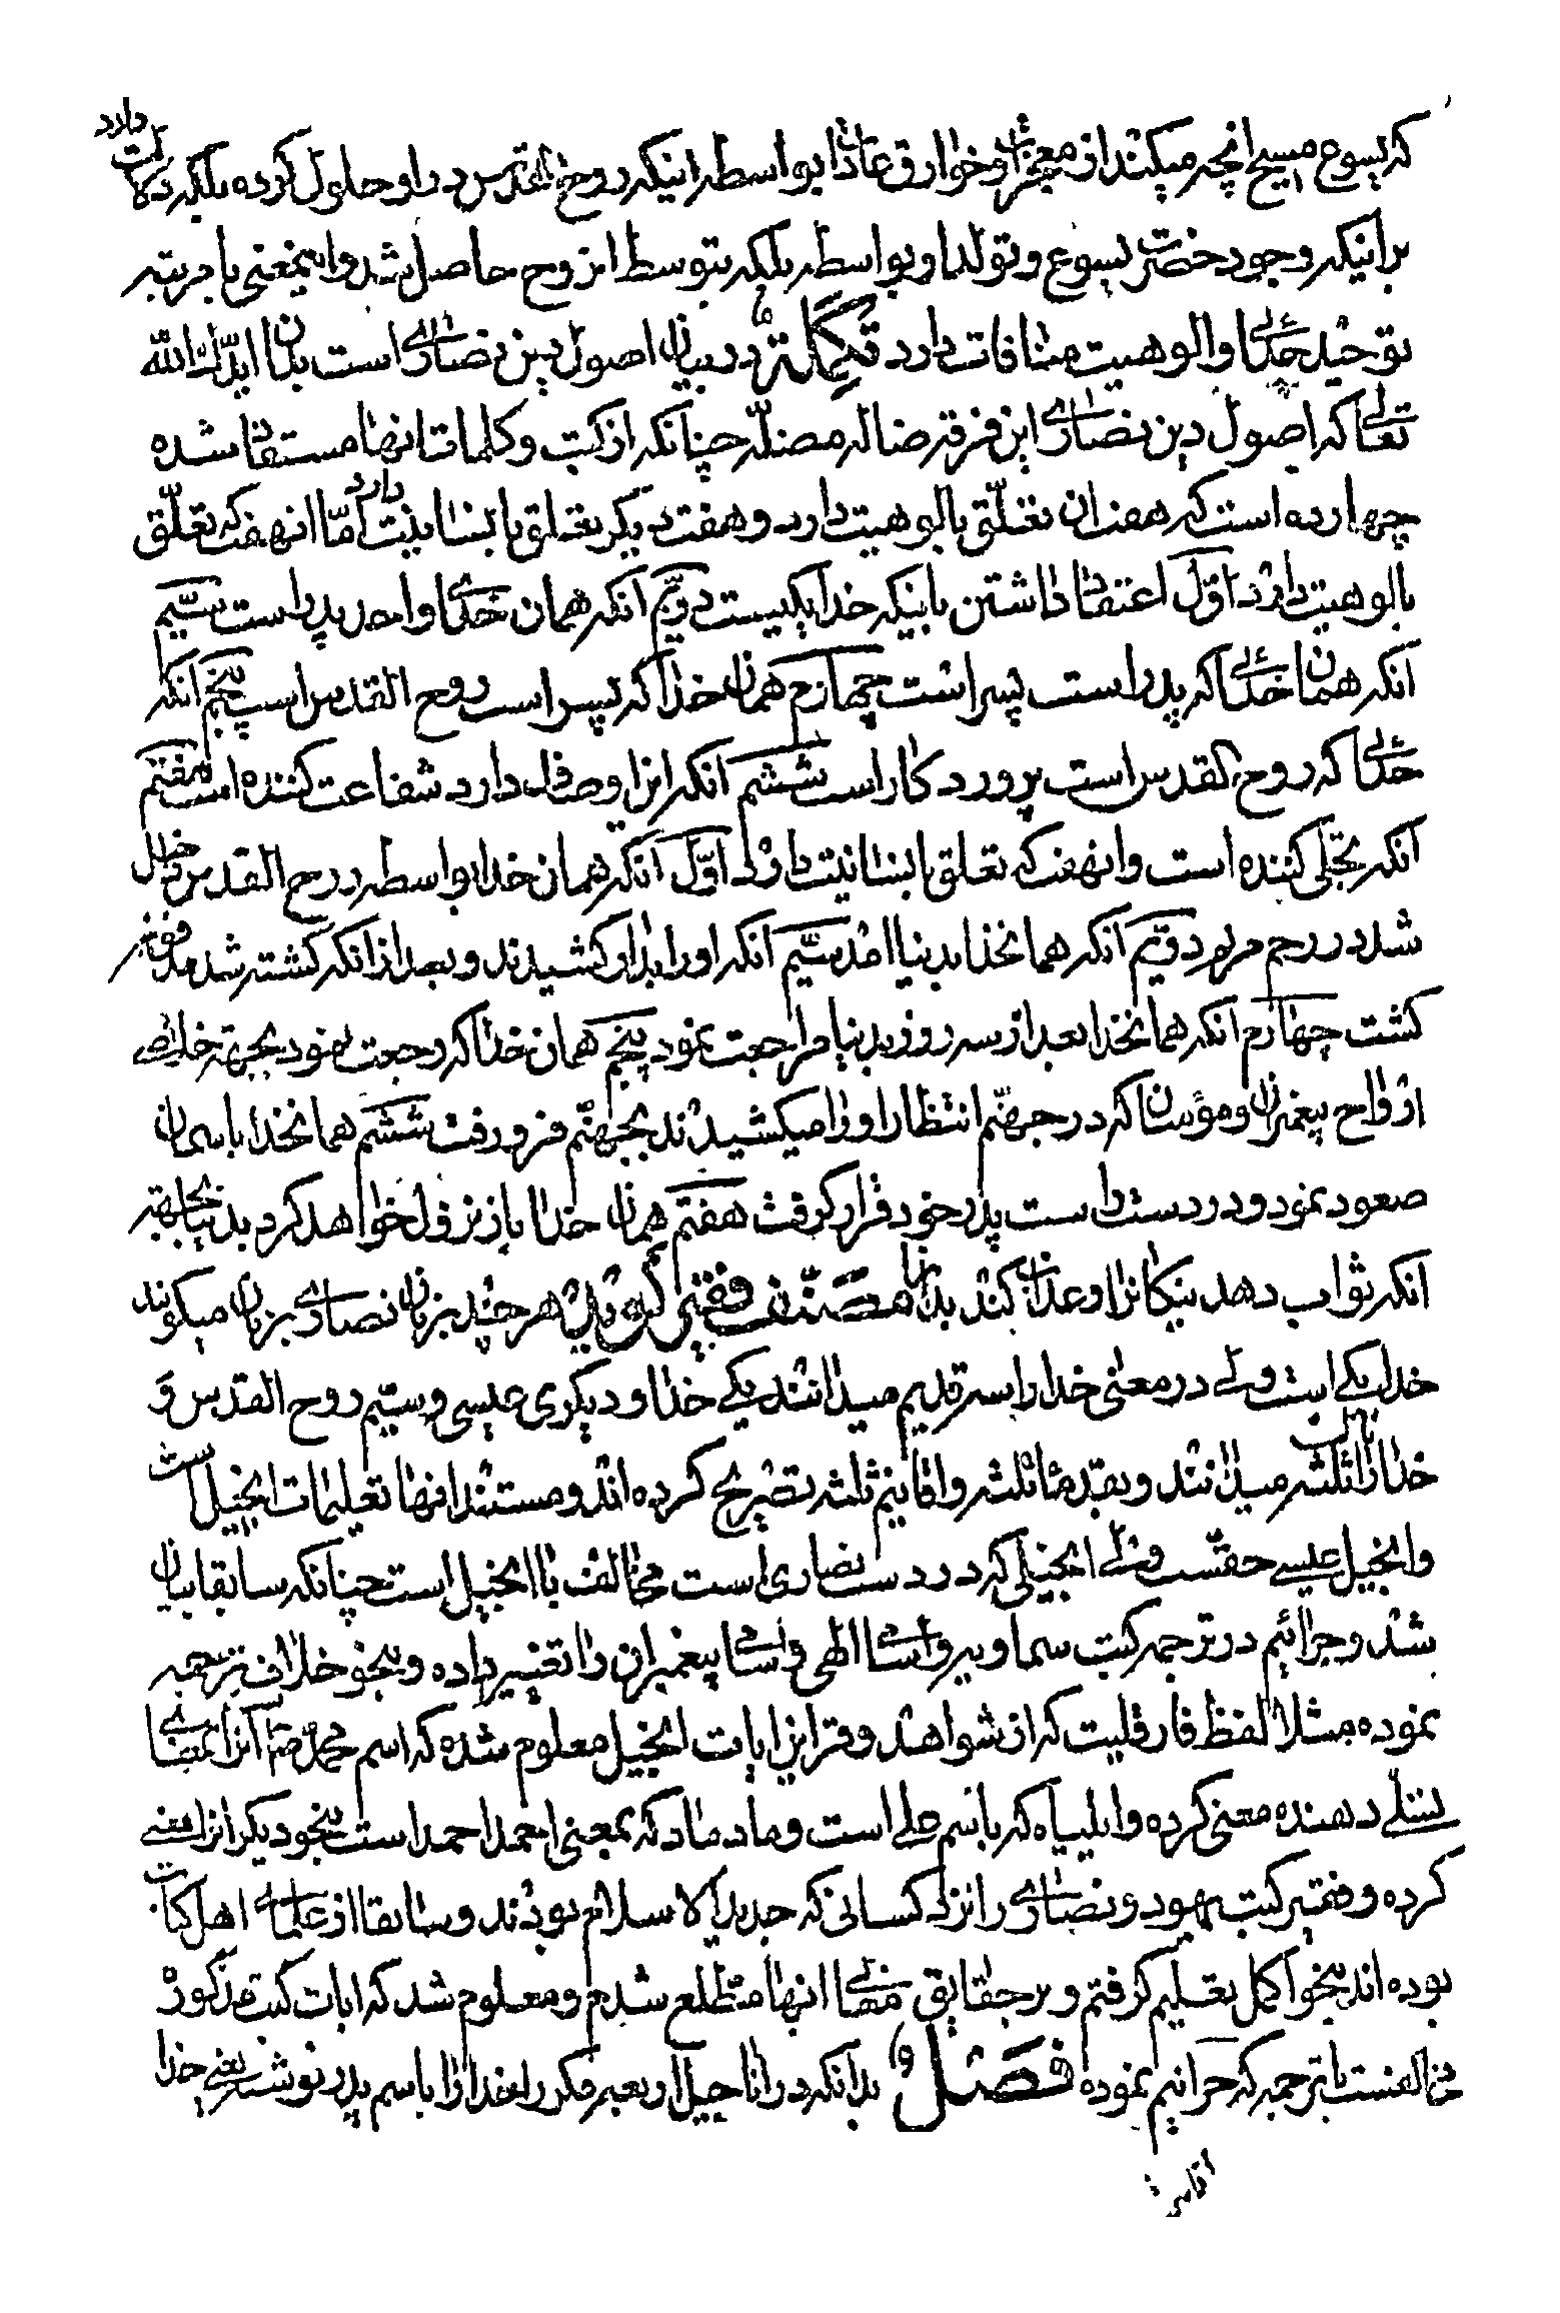 که یسوع مسیح انچه میکند از معجزات و خوارق عادات بواسطه اینکه روح القدس در او حلول کرده بلکه دلالت دارد
برانیکه وجود حضرت یسوع و تولد او بواسطه بلکه بتوسط انروح حاصل شد و اینمعنی با مرتبه
توحید خدائی و الوهیت منافات دارد تکملة در بیان اصول دین نصاری است بدان ایدک الله
تعالی که اصول دین نصاری این فرقه ضاله مضله چنانکه از کتب و کلمات انها مستفاد شده
چهارده است که هفت ان تعلق بالوهیت دارد و هفت دیگر تعلق بانسانیت دارد اما انهفت که تعلق
بالوهیت دارد اول اعتقاد داشتن باینکه خدا یکیست دویم انکه همان خدای واحد پدر است سیم
انکه همان خدائی که پدر است پسر است چهارم همان خدا که پسر است روح القدس است پنجم انکه
خدائی که روح القدس است پروردکار است ششم انکه این اوصاف که دارد شفاعت کننده است هفتم
انکه تجلی کننده است و انهفت که تعلق بانسانیت دارد اول انکه همان خدا بواسطه روح القدس داخل
شد در رحم مریم دویم انکه همانخدا بدنیا امد سیم انکه او را بدار کشیدند و بعد از انکه کشته شد مدفون
کشت چهارم انکه همانخدا بعد از سه روز بدنیا مراجعت نمود پنجم همان خدا که رجعت نمود بجهة خلاصی
ارواح پیغمبران و مؤمنان که در جهنم انتظار او را میکشیدند بجهنم فرو رفت ششم همانخدا باسمان
صعود نمود و در دست راست پدر خود قرار کرفت هفتم همان خدا باز نزول خواهد کرد بدنیا بجهة
انکه ثواب دهد نیکانرا و عذاب کند بدانرا مصنف فقیر کوید هر چند بزبان نصاری بزبان میکویند
خدا یکی است ولی در معنی خدا را سه قدیم میدانند یکی خدا و دیکری عیسی و سیم روح القدس و
خدا را ثالث ثلثه میدانند و بقدماء ثلثه و اقانیم ثلثه تصریح کرده اند و مستند انها تعلیمات انجیل است
و انجیل عیسی حقست ولی انجیلی که در دست نصاری است مخالف با انجیل است چنانکه سابقا بیان
شد و جرانیم در ترجمه کتب سماویه و اسماء الهی و اسماء پیغمبران را تغییر داده و بنحو خلاف ترجمه
نموده مثلا لفظ فارقلیت که از شواهد و قراین ایات انجیل معلوم شده که اسم محمد ص انرا بمعنای
تسلی دهنده معنی کرده و ایلیاه که باسم علی است و ماد ماد که بمعنی احمد احمد است بنحو دیکر انرا معنی
کرده و فقیر کتب یهود و نصاری را نزد کسانی که جدید الاسلام بودند و سابقا از علمای اهل کتاب
بوده اند بنحو اکمل تعلیم کرفتم و بر حقایق انها مطلع شدم و معلوم شد که ایات کتب مذکوره
مخالفست با ترجمه که جرانیم نموده فصل بدانکه در اناجیل اربعه مکرر خدا را باسم پدر نوشته یعنی خدا